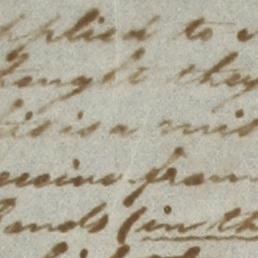 applied to
thought they
this is a mis
receive from
lands (in th